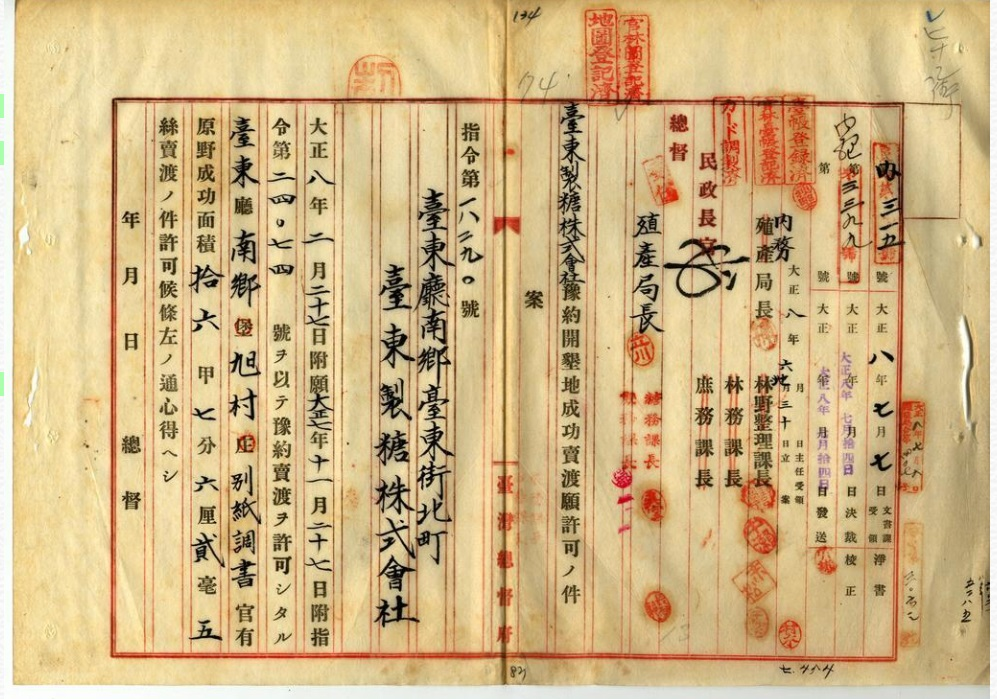 134
74
地圖登記濟
官林圖登記濟
臺帳登録濟
官林臺帳登記濟
カード調製濟
內 三一五 號 大正 八 年 七 月 七 日 文書課受領 淨書
第三三九九號 大正八年 七月拾四日 日決裁 校正
第 號 大正 年 月 日發送
大正 八 年 六 月 三十 日立案
月 日主任受領
內務
殖產局長 林野整理課長
民政長官 林務課長
總督 庶務課長
殖產局長
臺東製糖株式會社豫約開墾地成功賣渡願許可ノ件
案
指令第一八二九〇號
臺東廳南鄉臺東街北町
臺東製糖株式會社
大正八年二月二十七日附願大正七年十一月二十七日附指
令第二四〇七四號ヲ以テ豫約賣渡ヲ許可シタル
臺東廳南鄉堡旭村庄別紙調書官有
原野成功面積拾六甲七分六厘貳毫五
絲賣渡ノ件許可候條左ノ通心得ヘシ
年 月 日 總督
臺灣總督府